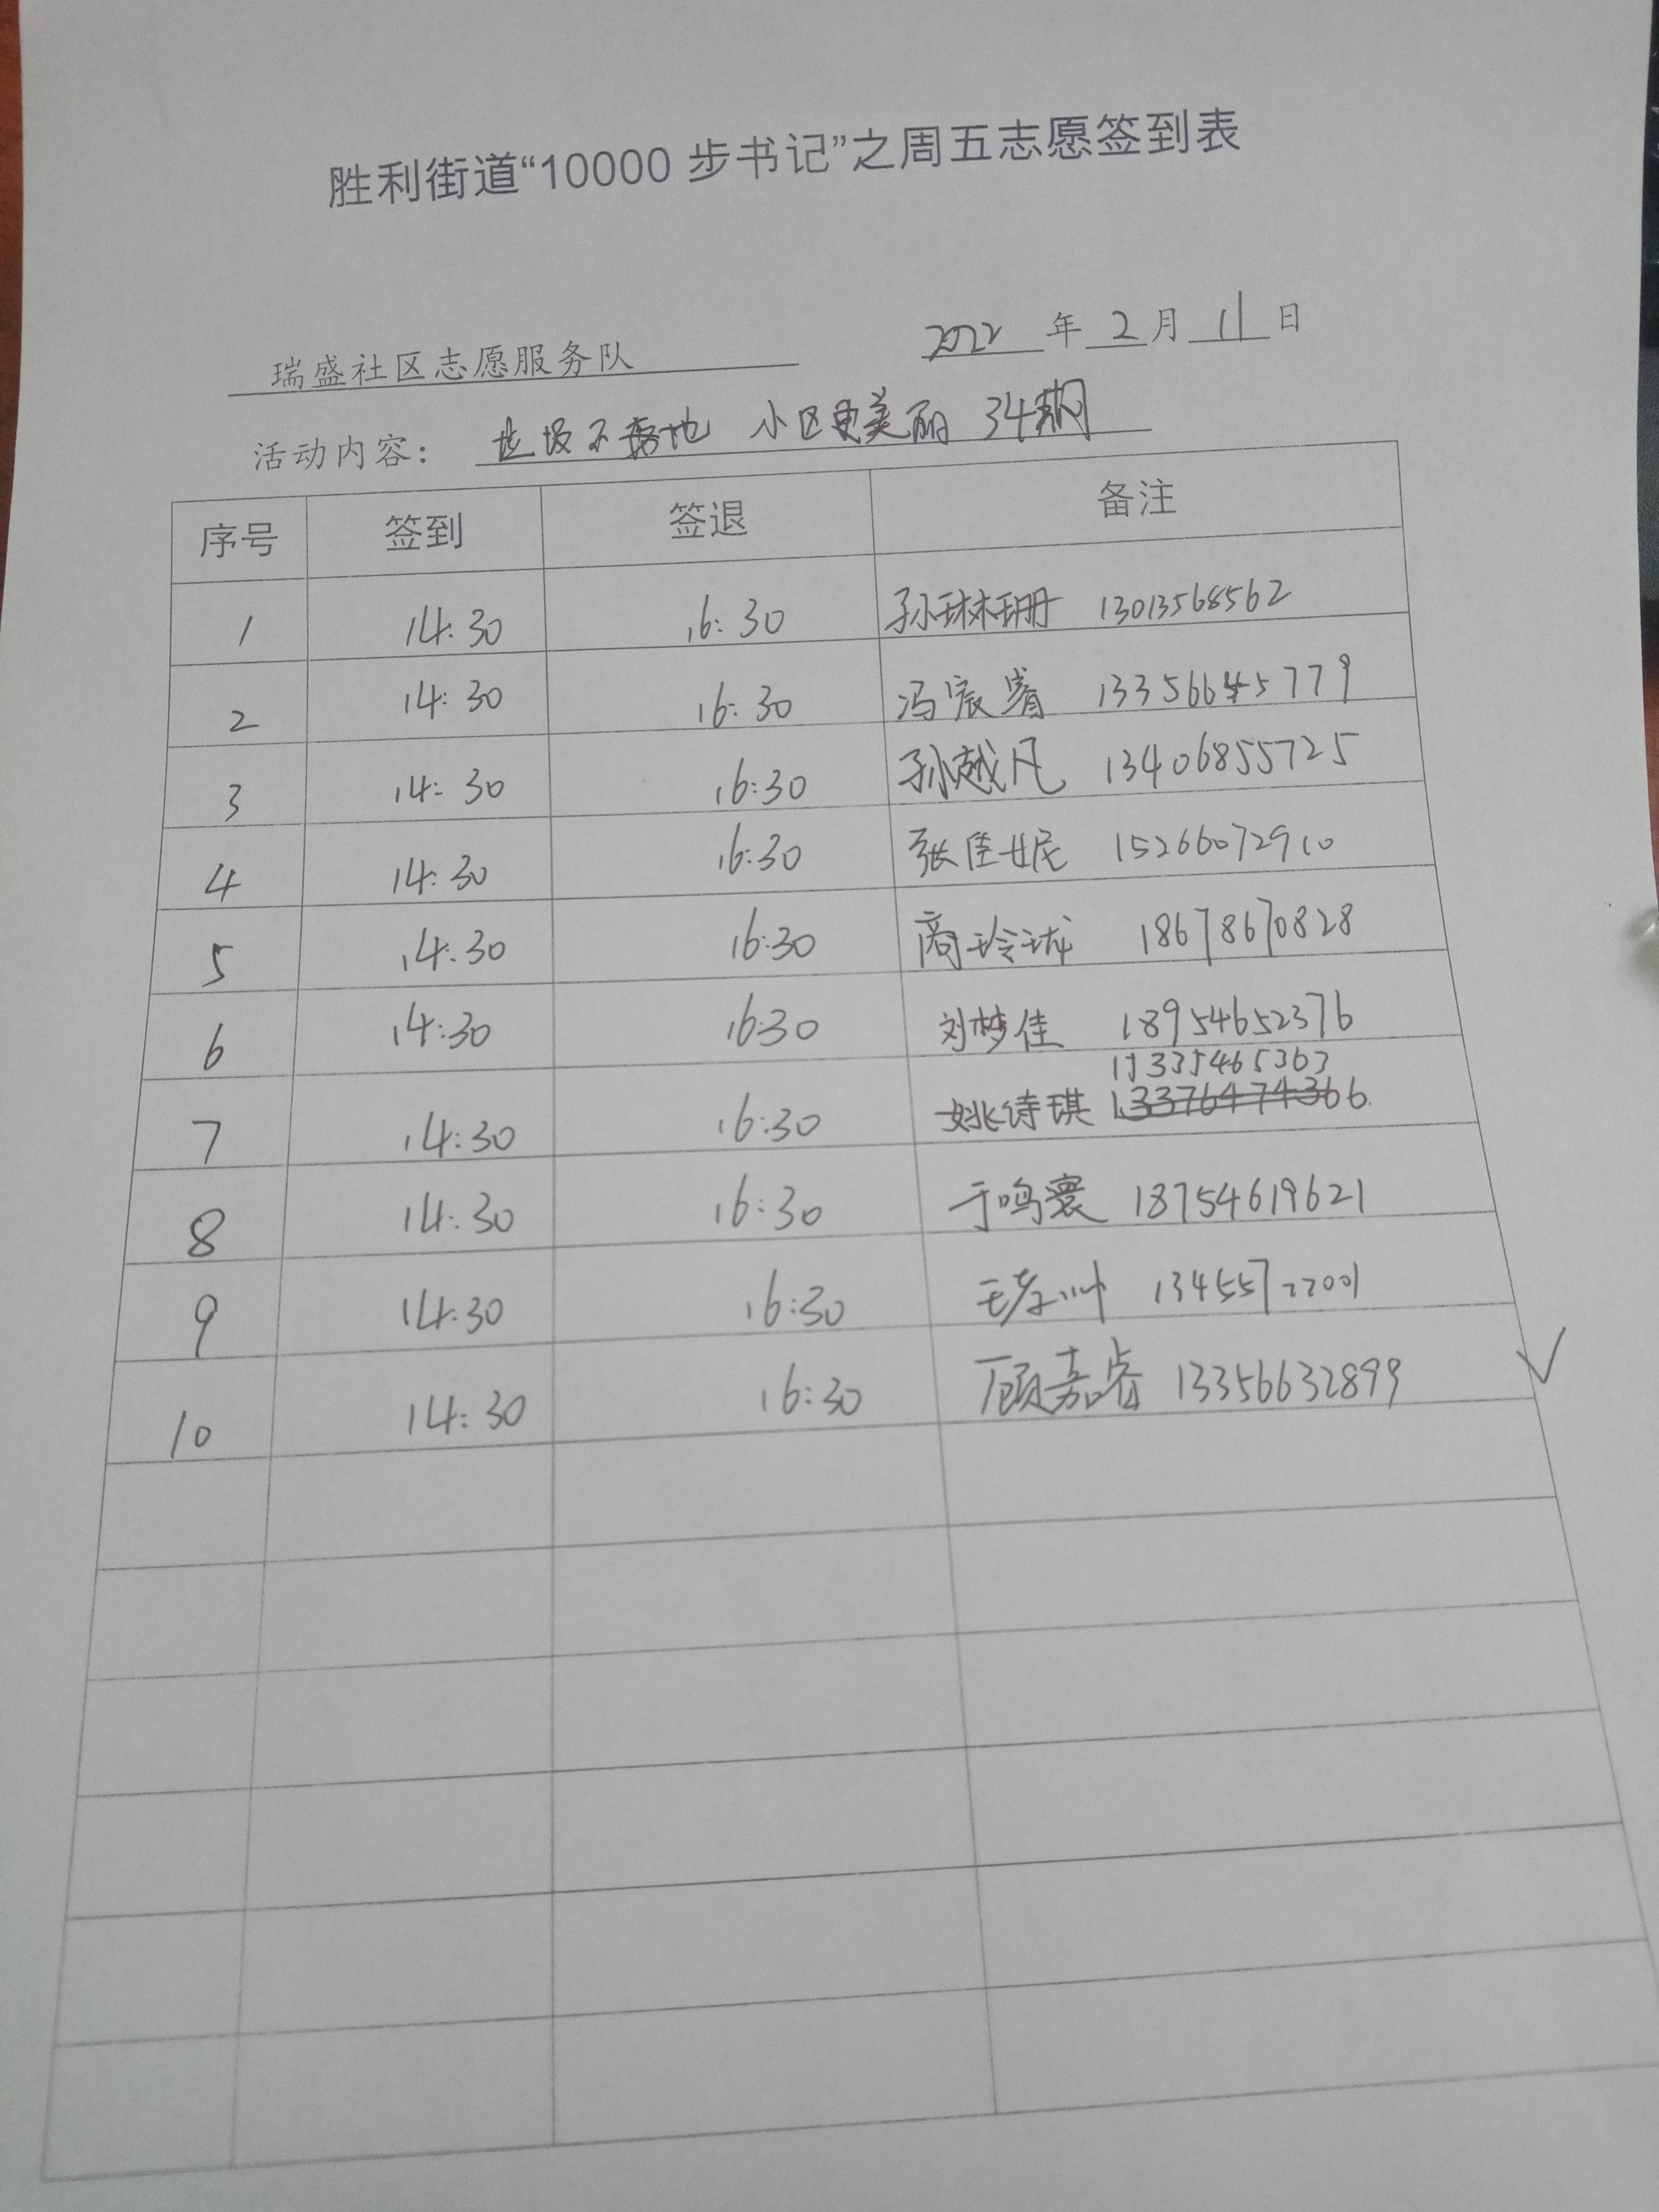 胜利街道“10000 步书记”之周五志愿签到表
瑞盛社区志愿服务队 2022 年 2 月 11 日
活动内容： 垃圾不落地 小区更美丽 34期
序号 签到 签退 备注
1 14:30 16:30 孙琳珊 13013568562
2 14:30 16:30 冯宸睿 13356645779
3 14:30 16:30 孙越凡 13406855725
4 14:30 16:30 张佳妮 15266072910
5 14:30 16:30 商玲珑 18678670828
6 14:30 16:30 刘梦佳 18954652376
7 14:30 16:30 姚诗琪
8 14:30 16:30 于鸣寰 18754619621
9 14:30 16:30 13455722001
10 14:30 16:30 顾嘉睿 13356632899